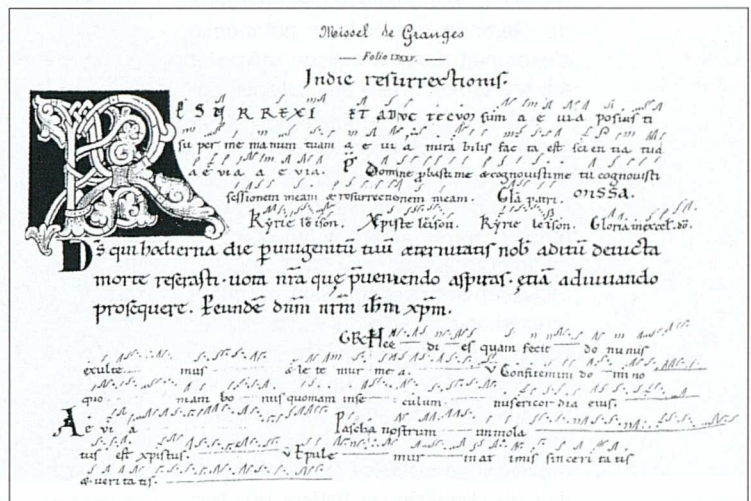 Missel de Granges
Folio LXXXV.
In die resurrectionis.
RESURREXI ET ADUC TECUM sum a e uia posuisti
super me manum tuam a e ui a mira bilis fac ta est scientia tua
a e via a e via. Domine probastime & cognovistime tu cognovisti
sessionem meam & resurrectionem meam. Gla patri. missa.
Kyrie leison. Xpiste leison. Kyrie leison. Gloria inexcel. do.
Ds qui hodierna die punigenitu tuu æternitatis nob aditu deuicta
morte reserasti. uota nra que pueniendo aspiras. etia adiuuando
prosequere. P eunde dnm nrm ihm xpm.
GR Hec di es quam fecit do minus
exulte mus & le te mur in e a. Confitemini do mino
quo niam bo nus quoniam inse culum misericor dia eius.
A e vi a Pascha nostrum immola
tus est xpistus. Epule mur in az imis sinceri tatis
& ueri tatis.